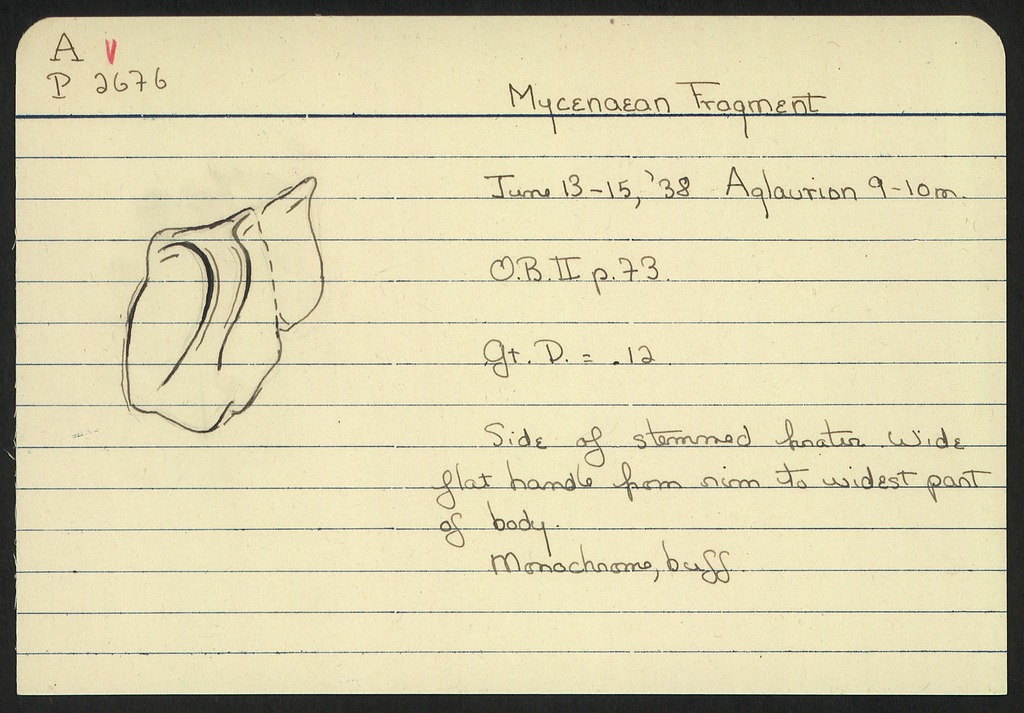 A V
P 2676
Mycenaean Fragment
June 13-15, '38 Aglaurion 9-10m.
O.B. II p.73.
Gt. D. = .12
Side of stemmed krater. Wide
flat handle from rim to widest part
of body.
Monochrome, buff.